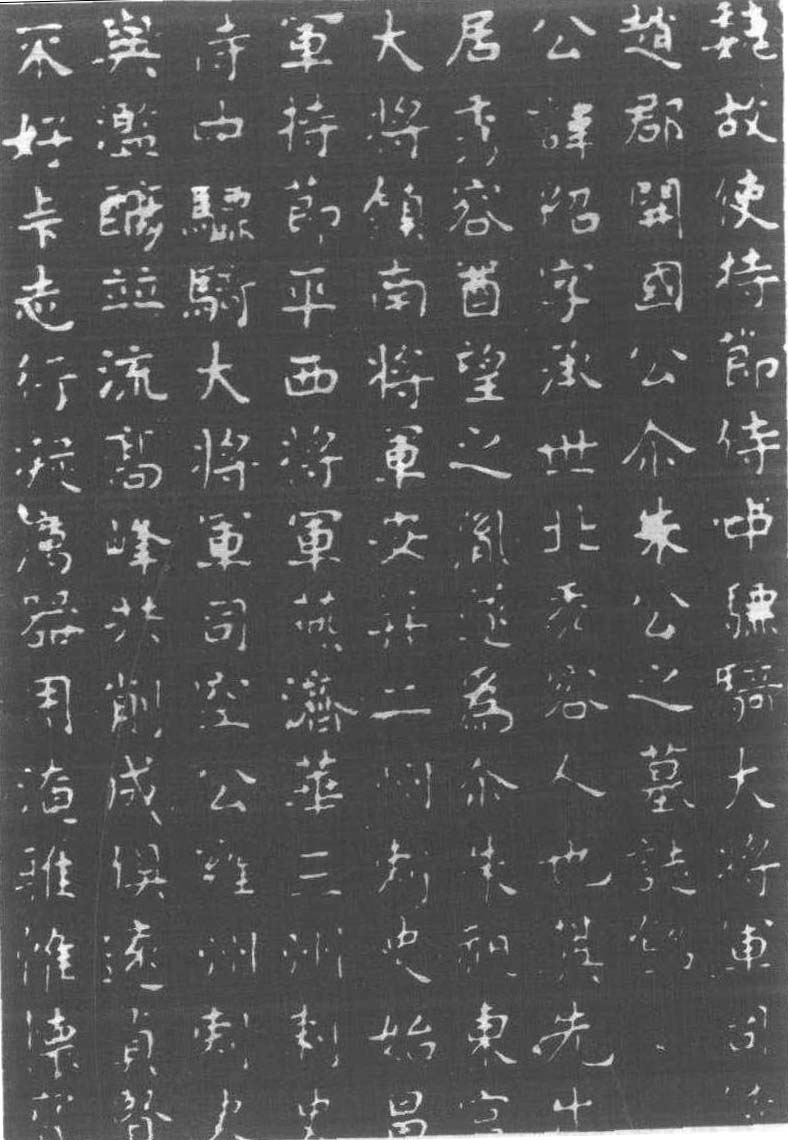 魏故使持節侍中驃騎大將軍司徒
趙郡開國公尒朱公之墓誌銘
公諱紹字承世北秀容人也其先出
居秀容酋望之胤遂為尒朱祖東宮
大將領南將軍安并二州刺史始昌
軍持節平西將軍燕濟華三州刺史
侍中驃騎大將軍司空公雍州刺史
與濫醲並流高峰共削成俱遠貞賢
不好弄志行凝高器用淹雅惟懷